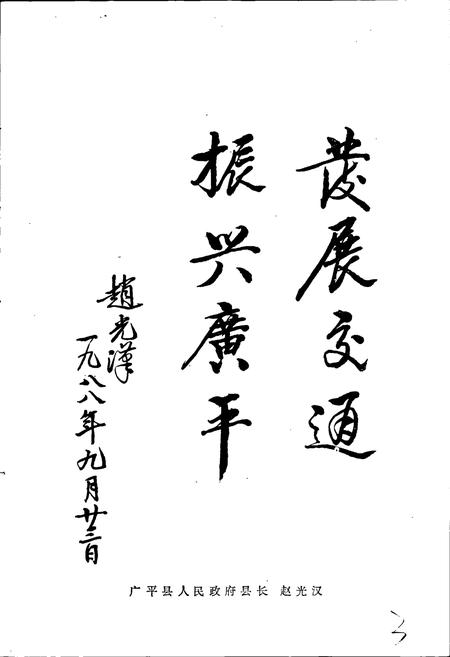 發展交通
振兴廣平
趙光漢
一九八八年九月廿三日
广平县人民政府县长 赵光汉
3